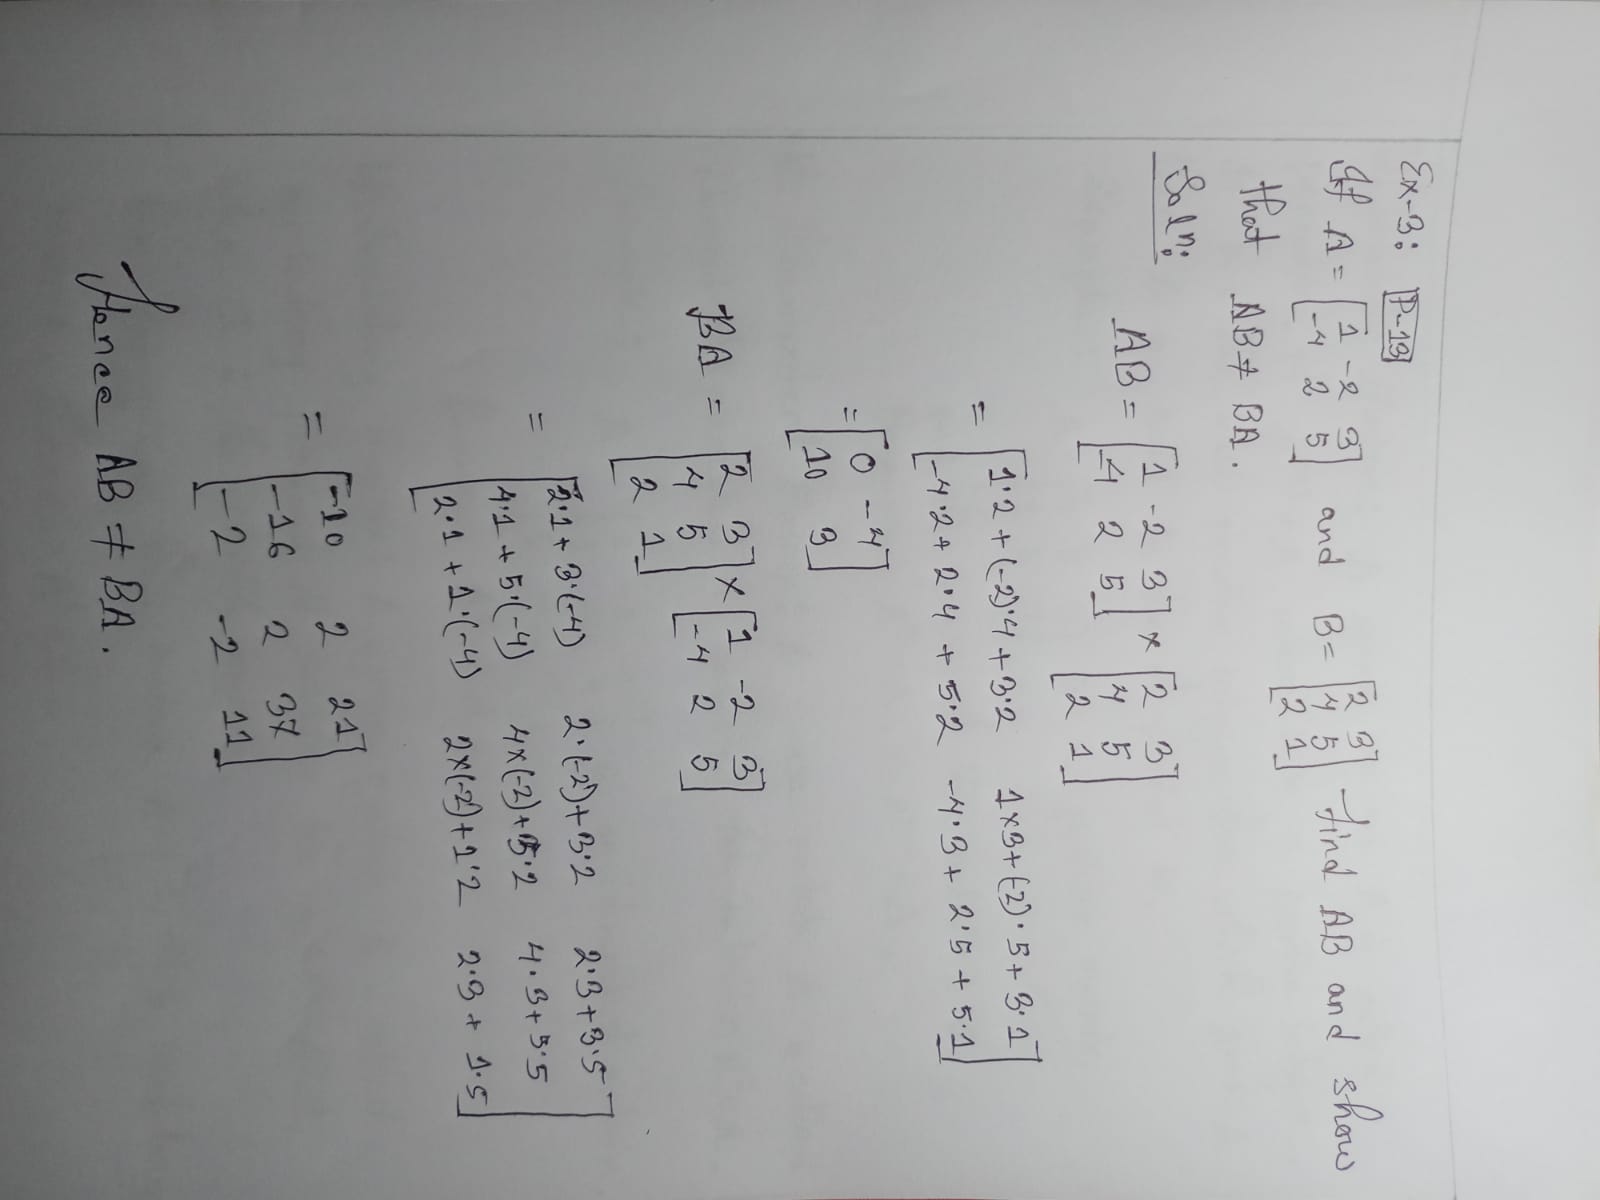 Ex-3: P-13
If A = [1 -2 3
-4 2 5] and B = [2 3
4 5
2 1] find AB and show
that AB ≠ BA.
Soln:
AB = [1 -2 3
-4 2 5] × [2 3
4 5
2 1]
= [1·2 + (-2)·4 + 3·2 1×3 + (-2)·5 + 3·1
-4·2 + 2·4 + 5·2 -4·3 + 2·5 + 5·1]
= [0 -4
10 3]
BA = [2 3
4 5
2 1] × [1 -2 3
-4 2 5]
= [2·1 + 3·(-4) 2·(-2) + 3·2 2·3 + 3·5
4·1 + 5·(-4) 4×(-2) + 5·2 4·3 + 5·5
2·1 + 1·(-4) 2×(-2) + 1·2 2·3 + 1·5]
= [-10 2 21
-16 2 37
-2 -2 11]
Hence AB ≠ BA.